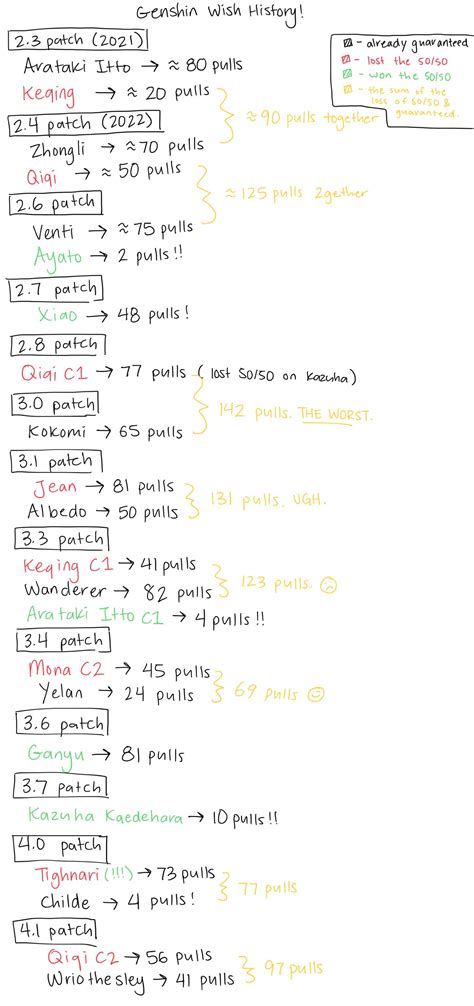 Genshin Wish History!
- already guaranteed
- lost the 50/50
- won the 50/50
- the sum of the
loss of 50/50 &
guaranteed.
2.3 patch (2021)
Arataki Itto → ≈ 80 pulls
Keqing → ≈ 20 pulls
≈ 90 pulls together
2.4 patch (2022)
Zhongli → ≈ 70 pulls
Qiqi → ≈ 50 pulls
≈ 125 pulls 2gether
2.6 patch
Venti → ≈ 75 pulls
Ayato → 2 pulls!!
2.7 patch
Xiao → 48 pulls!
2.8 patch
Qiqi C1 → 77 pulls (lost 50/50 on Kazuha)
142 pulls. THE WORST.
3.0 patch
Kokomi → 65 pulls
3.1 patch
Jean → 81 pulls
131 pulls. UGH.
Albedo → 50 pulls
3.3 patch
Keqing C1 → 41 pulls
123 pulls. ☹
Wanderer → 82 pulls
Arataki Itto C1 → 4 pulls!!
3.4 patch
Mona C2 → 45 pulls
69 pulls ☺
Yelan → 24 pulls
3.6 patch
Ganyu → 81 pulls
3.7 patch
Kazuha Kaedehara → 10 pulls!!
4.0 patch
Tighnari (!!!) → 73 pulls
77 pulls
Childe → 4 pulls!
4.1 patch
Qiqi C2 → 56 pulls
97 pulls
Wriothesley → 41 pulls